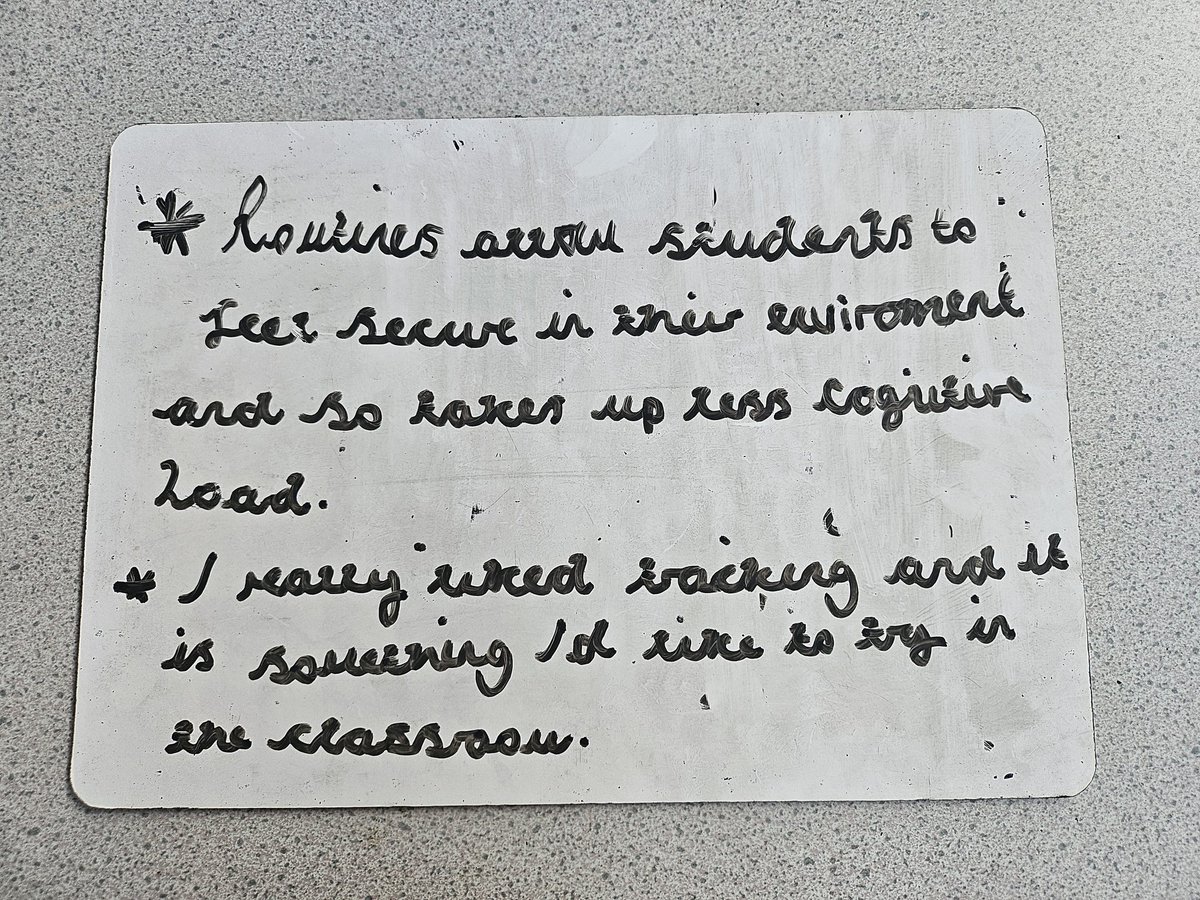 * Routines allow students to
feel secure in their enviroment
and so takes up less Cognitive
Load.
* I really liked tracking and it
is something I'd like to try in
the classroom.